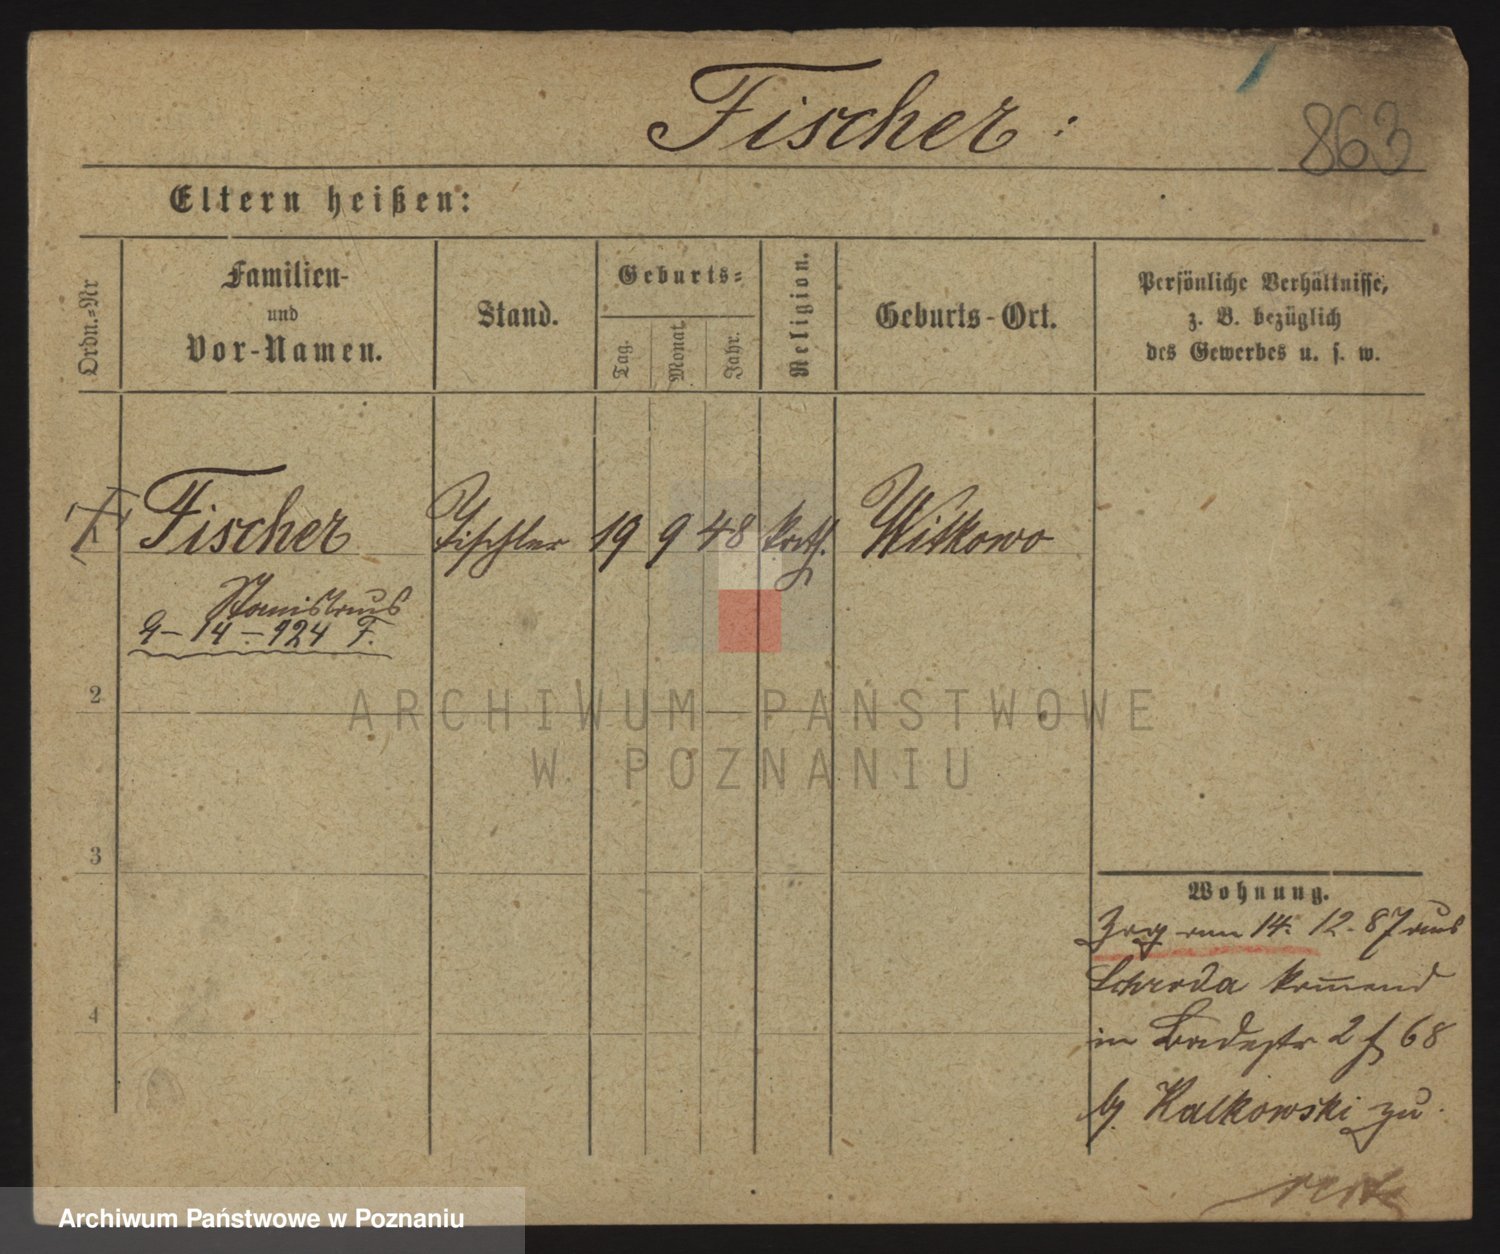 Fischer:
863
Eltern heißen:
Ordn.-Nr
Familien-
und
Vor-Namen.
Stand.
Geburts-
Tag.
Monat.
Jahr.
Religion.
Geburts-Ort.
Persönliche Verhältnisse,
z. B. bezüglich
des Gewerbes u. s. w.
Fischer Tischler 19 9 48 kath. Witkowo
Stanislaus
9-14-924 F.
2
ARCHIWUM PAŃSTWOWE
W POZNANIU
3
Wohnung.
Zog am 14. 12. 87 aus
Schroda kom̅end
4
in Badestr 2 f 68
bj. Kalkowski zu
Archiwum Państwowe w Poznaniu